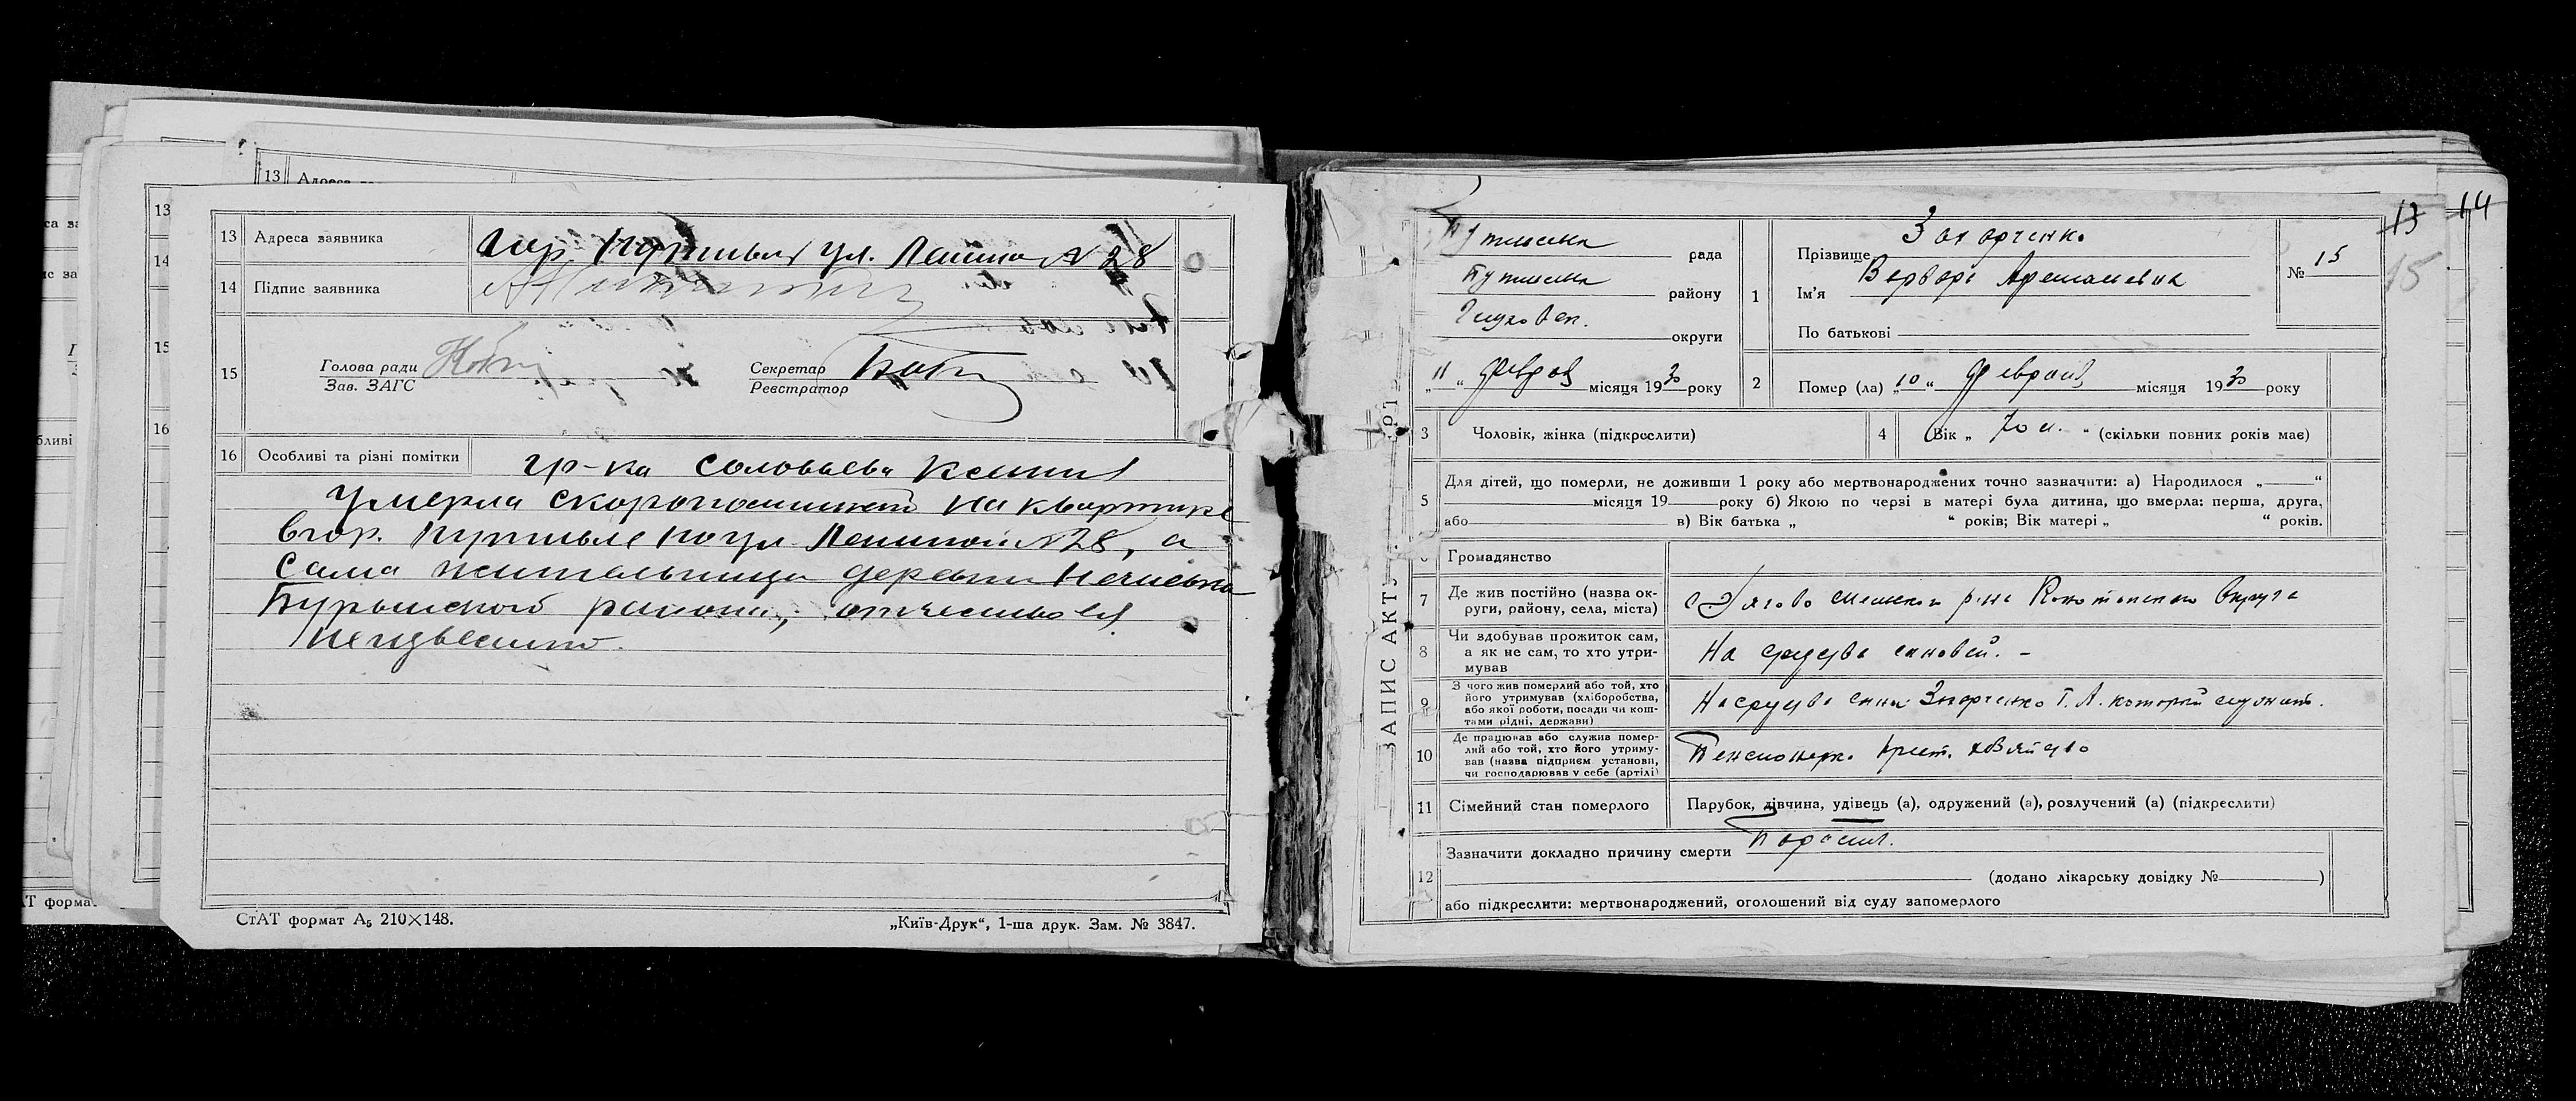 13 Адреса заявника гор. Путивль ул. Ленина № 28
14 Підпис заявника
15 Голова ради
Зав. ЗАГС
Секретар
Реєстратор
16 Особливі та різні помітки гр-ка Соловьева Ксения
умерла скоропостижно на квартире
в гор. Путивле по ул. Лениной № 28, а
сама жительница деревни
Бурынского района, отчество ея
неизвестно.
СтАТ формат А₅ 210×148.
„Київ-Друк“, 1-ша друк. Зам. № 3847.
13 14
15
ЗАПИС АКТУ
рада
району
округи
„11“ Февраля місяця 1930 року
1 Прізвище Захарченко
Ім'я Варвара
По батькові
№ 15
2 Помер (ла) „10“ Февраля місяця 1930 року
3 Чоловік, жінка (підкреслити)
4 Вік „ 70 л. “ (скільки повних років має)
5 Для дітей, що померли, не доживши 1 року або мертвонароджених точно зазначити: а) Народилося „ “
місяця 19 року б) Якою по черзі в матері була дитина, що вмерла: перша, друга,
або в) Вік батька „ “ років; Вік матері „ “ років.
Громадянство
7 Де жив постійно (назва ок-
руги, району, села, міста)
р-на Конотопского Округа
8 Чи здобував прожиток сам,
а як не сам, то хто утри-
мував
На средства сыновей. –
9 З чого жив померлий або той, хто
його утримував (хліборобства,
або якої роботи, посади чи кош-
тами рідні, держави)
На средства сына Захарченко Г. А. который служит.
10 Де працював або служив помер-
лий або той, хто його утриму-
вав (назва підприєм. установи,
чи господарював у себе (артілі)
Пенсионерка. Крест. хозяйство
11 Сімейний стан померлого Парубок, дівчина, удівець (а), одружений (а), розлучений (а) (підкреслити)
12 Зазначити докладно причину смерти
(додано лікарську довідку № )
або підкреслити: мертвонароджений, оголошений від суду запомерлого